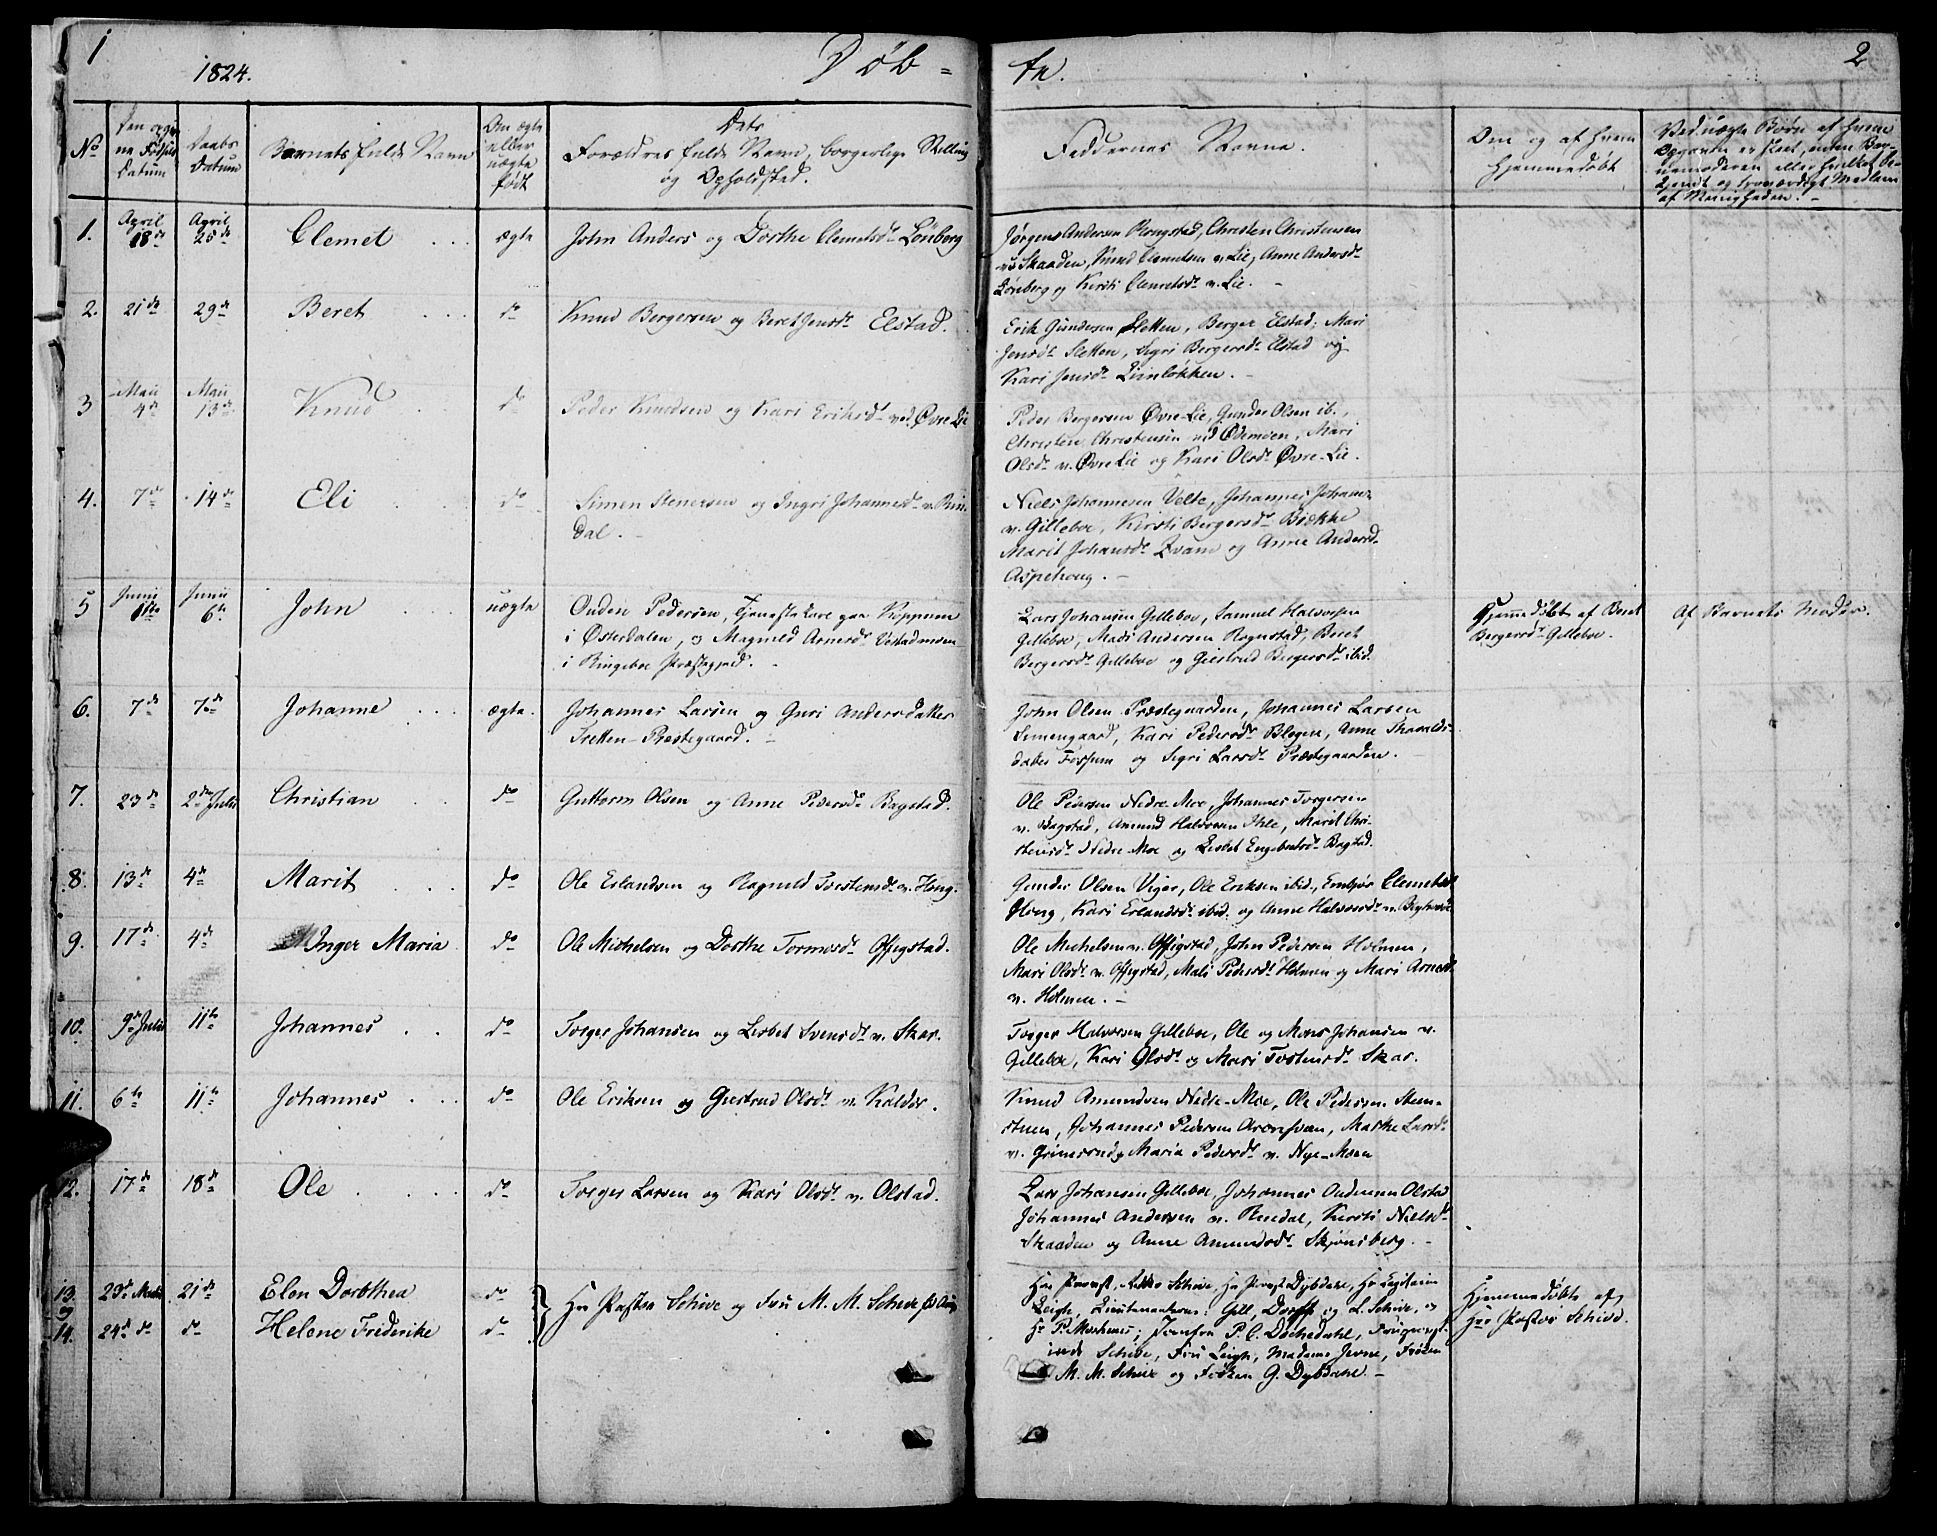 1
1824.
Døb=
te.
2
No
Den opgivne Fødsels Datum
Daabs Datum
Barnets fulde Navn
Om ægte eller uægte født
Dets Forældres fulde Navn, borgerlige Stilling og Opholdsted.
Faddernes Navne.
Om og af hvem hjemmedøbt
Ved uægte Børn af hvem Opgaven er skeet, uden Barnemoderen eller hvilket bekjendt og troværdigt Medlem af Menigheden.
1. April 18de April 25de Clemet ægte John Anders og Dorthe Clemetsdr Lønberg
Jørgens Andersen Rongstad, Christen Christensen
Skaaden, Knud Clemetsen v. Lie, Anne Andersdr
Lønberg og Kirsti Clemetsdr v. Lie.
2. 21de 29de Beret do Knud Bergersen og Beret Jensdr Elstad.
Erik Gundersen Sletten, Berger Elstad, Mari
Jensdr Sletten, Sigri Bergersdr Elstad og
Kari Jensdr Liinløkken.
3 Maii 4de Maii 13de Knud do Peder Knudsen og Kari Eriksdr ved Øvre Lie
Peder Bergersen Øvre Lie, Gunder Olsen ib.,
Christen Christensen ved Ødemoen, Mari
Olsdr v. Øvre Lie og Kari Olsdr Øvre-Lie.
4. 7de 14de Eli do Simen Stenersen og Ingri Johannesdr v. Rin-
dal.
Niels Johannesen Velte, Johannes Johans.
v. Gilleboe, Kirsti Bergersdr Bække
Marit Johansdr Qvam og Anne Andersd.
Aspehoug.
5 Junii 1ste Junii 6te John uægte Ouden Pedersen, Tjenestekarl paa Koppumen
i Østerdalen, og Magnild Arnesdr Vestadmoen
i Ringeboe Præstegjeld.
Lars Johansen Gilleboe, Samuel Halvorsen
Gilleboe, Mads Andersen Rognstad, Beret
Bergersdr Gilleboe og Giertrud Bergersdr ibid.
Hjemmedøbt af Beret
Bergersdr Gilleboe.
Af Barnets Moder.
6. 7de 7de Johanne ægte. Johannes Larsen og Guri Andersdatter
Tretten-Præstegaard.
John Olsen Præstegaarden, Johannes Larsen
Simengaard, Kari Pedersdr Blegen, Anne Thoralds-
datter Fossum og Sigri Larsdr Præstegaarden.
7. 23de 2den Julii Christian do Guttorm Olsen og Anne Pedersdr Bagstad.
Ole Pedersen Nedre-Moe, Johannes Torgersen
v. Bagstad, Amund Halvorsen Ihle, Marit Chri-
stensdr Nedre Moe og Lisbet Engebretsdr Bagstad.
8. 13de 4de Marit do Ole Erlandsen og Ragnild Torstensdr v. Houg.
Gunder Olsen Viger, Ole Eriksen ibid., Embjør Clemetsd.
Houg, Kari Erlandsdr ibid. og Anne Halvorsdr v.
9. 17de 4de Inger Maria do Ole Michelsen og Dorthe Tormosdr Offigstad.
Ole Michelsen v. Offigstad, John Pedersen Holmen,
Mari Olsdr v. Offigstad, Mali Pedersdr Holmen og Mari Arnesd.
v. Holmen.
10. 9de Julii 11te Johannes do Torger Johansen og Lisbet Svensdr v. Skar.
Torger Halvorsen Gilleboe, Ole og Mons Johansen v.
Gilleboe, Kari Olsdr og Mari Tostensdr Skar.
11. 6te 11te Johannes do Ole Eriksen og Giertrud Olsdr v. Kalder.
Knud Amundsen Nedre-Moe, Ole Pedersen Stem-
stuen, Johannes Pedersen, Marthe Larsdr
v. Grimerud og Maria Pedersdr v. Nye-Moen
12. 17de 18de Ole do Torger Larsen og Kari Olsdr v. Olstad.
Lars Johansen Gilleboe, Johannes Oudensen Olstad
Johannes Andersen v. Rindal, Kirsti Nielsdr
Skaaden og Anne Amundsdr Skjønsberg.
13. og 29de Martii 21de Elen Dorothea do
14. 24de do do Helene Friderike do
Hr. Pastor Schive og Fru M. M. Schive
Hr. Provst Schive, Hr. Provst Dybdahl, Hr. Capitain
Leigh, Lieutenanterne: Gill, Dorff og L. Schive, og
Hr. P.; Jomfru P. C. Dochedahl,
Schive, Fru Leigh, Madame Jerne, Frøken
M. M. Schive og Frøken G. Dybdahl.
Hjemmedøbte af
Hr. Pastor Schive.